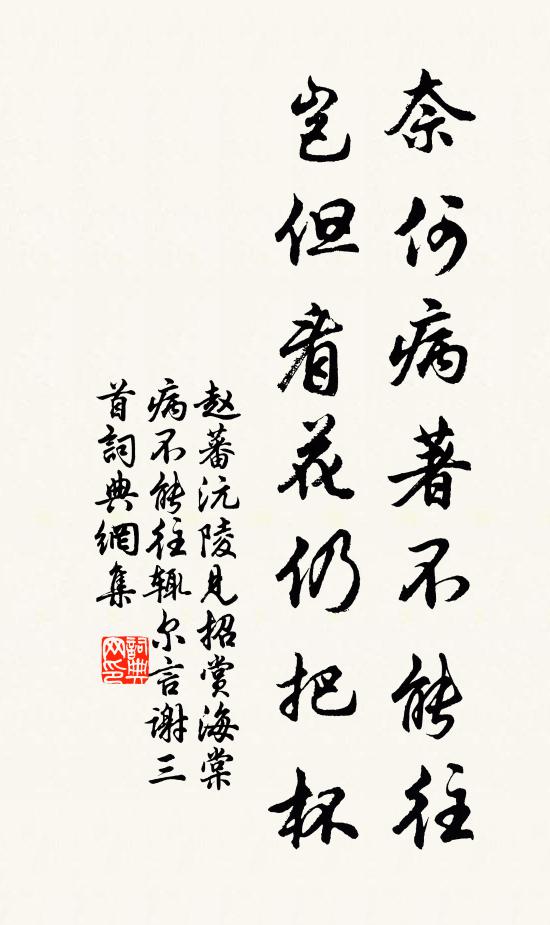 奈何病著不能往
岂但看花仍把杯
赵蕃沅陵见招赏海棠
病不能往辄尔言谢三
首詞典網集
詞典
网印